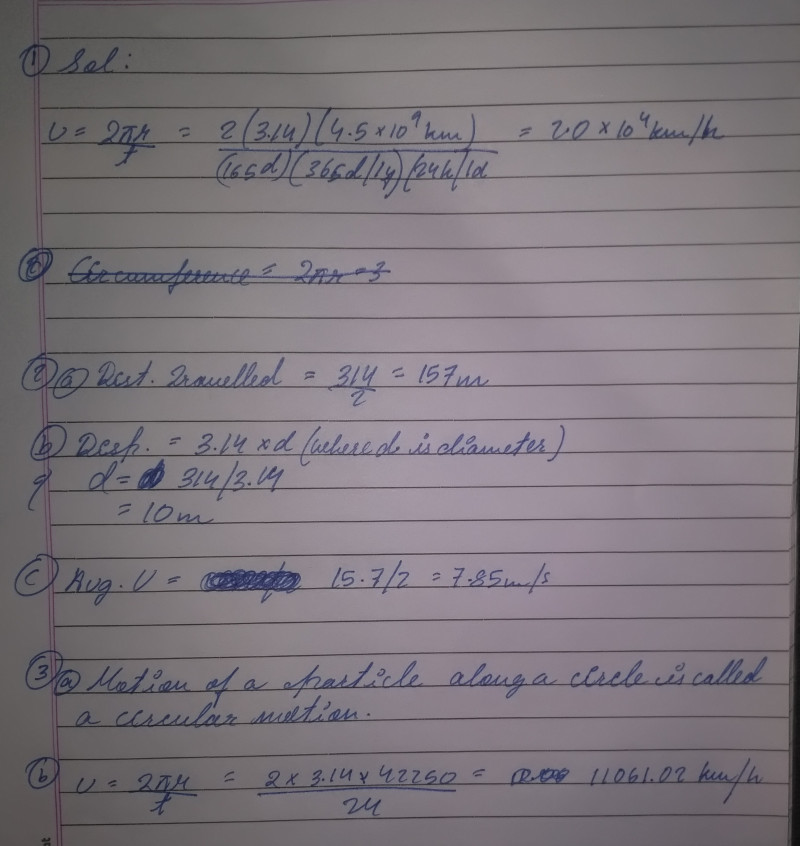 ① Sol:
v = 2πr/t = 2(3.14)(4.5×10⁹ km)/(165d)(365d/1y)(24h/1d = 2.0 × 10⁴ km/h
② Circumference = 2πr = 3
② ⓐ Dist. Travelled = 314/2 = 157m
ⓑ Disp. = 3.14 × d (where d is diameter)
d = 314/3.14
= 10m
ⓒ Avg. V = 15.7/2 = 7.85m/s
③ ⓐ Motion of a particle along a circle is called
a circular motion.
ⓑ v = 2πr/t = 2 × 3.14 × 42250/24 = 11061.02 km/h